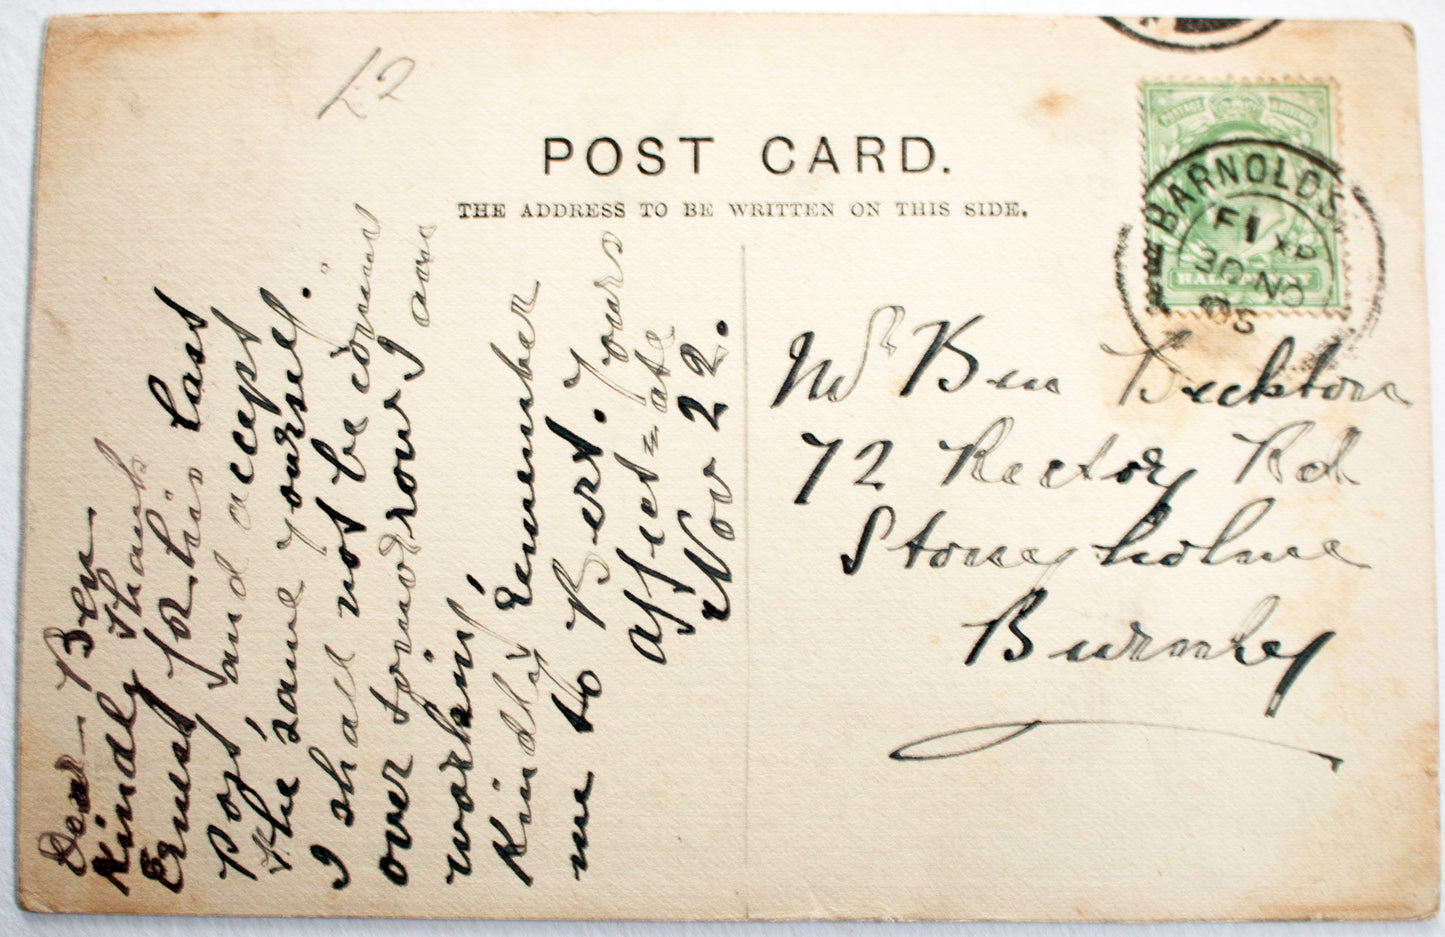 £2
POST CARD.
THE ADDRESS TO BE WRITTEN ON THIS SIDE.
POSTAGE REVENUE
HALFPENNY
BARNOLDS
F1 XP
30 NO
05
Dear Ben
Kindly thank
Ernest for his last
Post, and accept
the same yourself.
I shall not be coming
over tomorrow I am
working,
Kindly Remember
me to Bert. Yours
affect=ate
Nov 22.
Mr Ben
72 Rectory Rd
Stoneyholme
Burnley